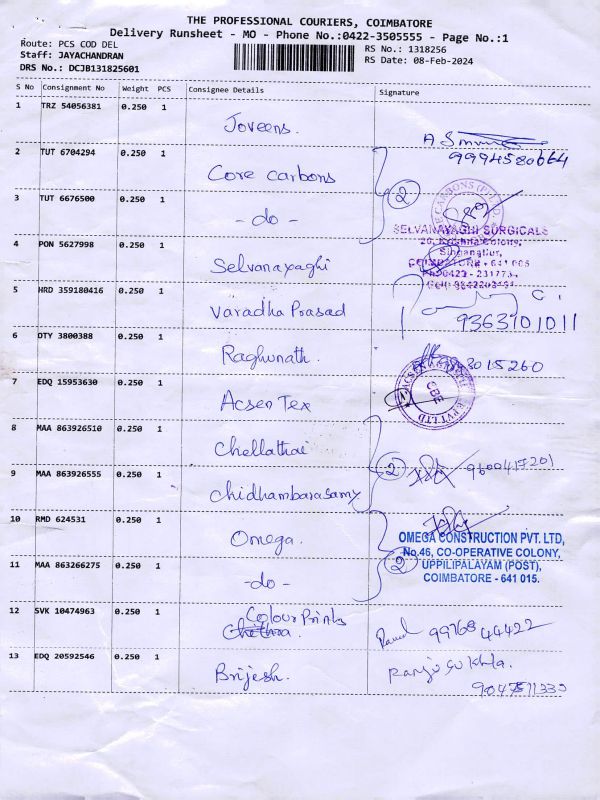 THE PROFESSIONAL COURIERS, COIMBATORE
Delivery Runsheet - MO - Phone No.:0422-3505555 - Page No.:1
Route: PCS COD DEL
Staff: JAYACHANDRAN
DRS No.: DCJB131825601
RS No.: 1318256
RS Date: 08-Feb-2024
S No Consignment No Weight PCS Consignee Details Signature
1 TRZ 54056381 0.250 1 Joveens.
9994580664
2 TUT 6704294 0.250 1 Core carbons
2
3 TUT 6676500 0.250 1 -do-
SELVANAYAGHI SURGICALS
20, Krishna Colony,
Singanallur,
COIMBATORE - 641 005
4 PON 5627998 0.250 1 Selvanayaghi
5 HRD 359180416 0.250 1 Varadha Prasad
9363101011
6 OTY 3800388 0.250 1 Raghunath.
7 EDQ 15953630 0.250 1 Acsen Tex
CBE
8 MAA 863926510 0.250 1 Chellathai
2 9600417201
9 MAA 863926555 0.250 1 Chidhambarasamy
10 RMD 624531 0.250 1 Omega.
OMEGA CONSTRUCTION PVT. LTD,
No.46, CO-OPERATIVE COLONY,
UPPILIPALAYAM (POST),
COIMBATORE - 641 015.
2
11 MAA 863266275 0.250 1 -do-
12 SVK 10474963 0.250 1 Colour Prints
Chithra.
99768 44422
13 EDQ 20592546 0.250 1 Brijesh.